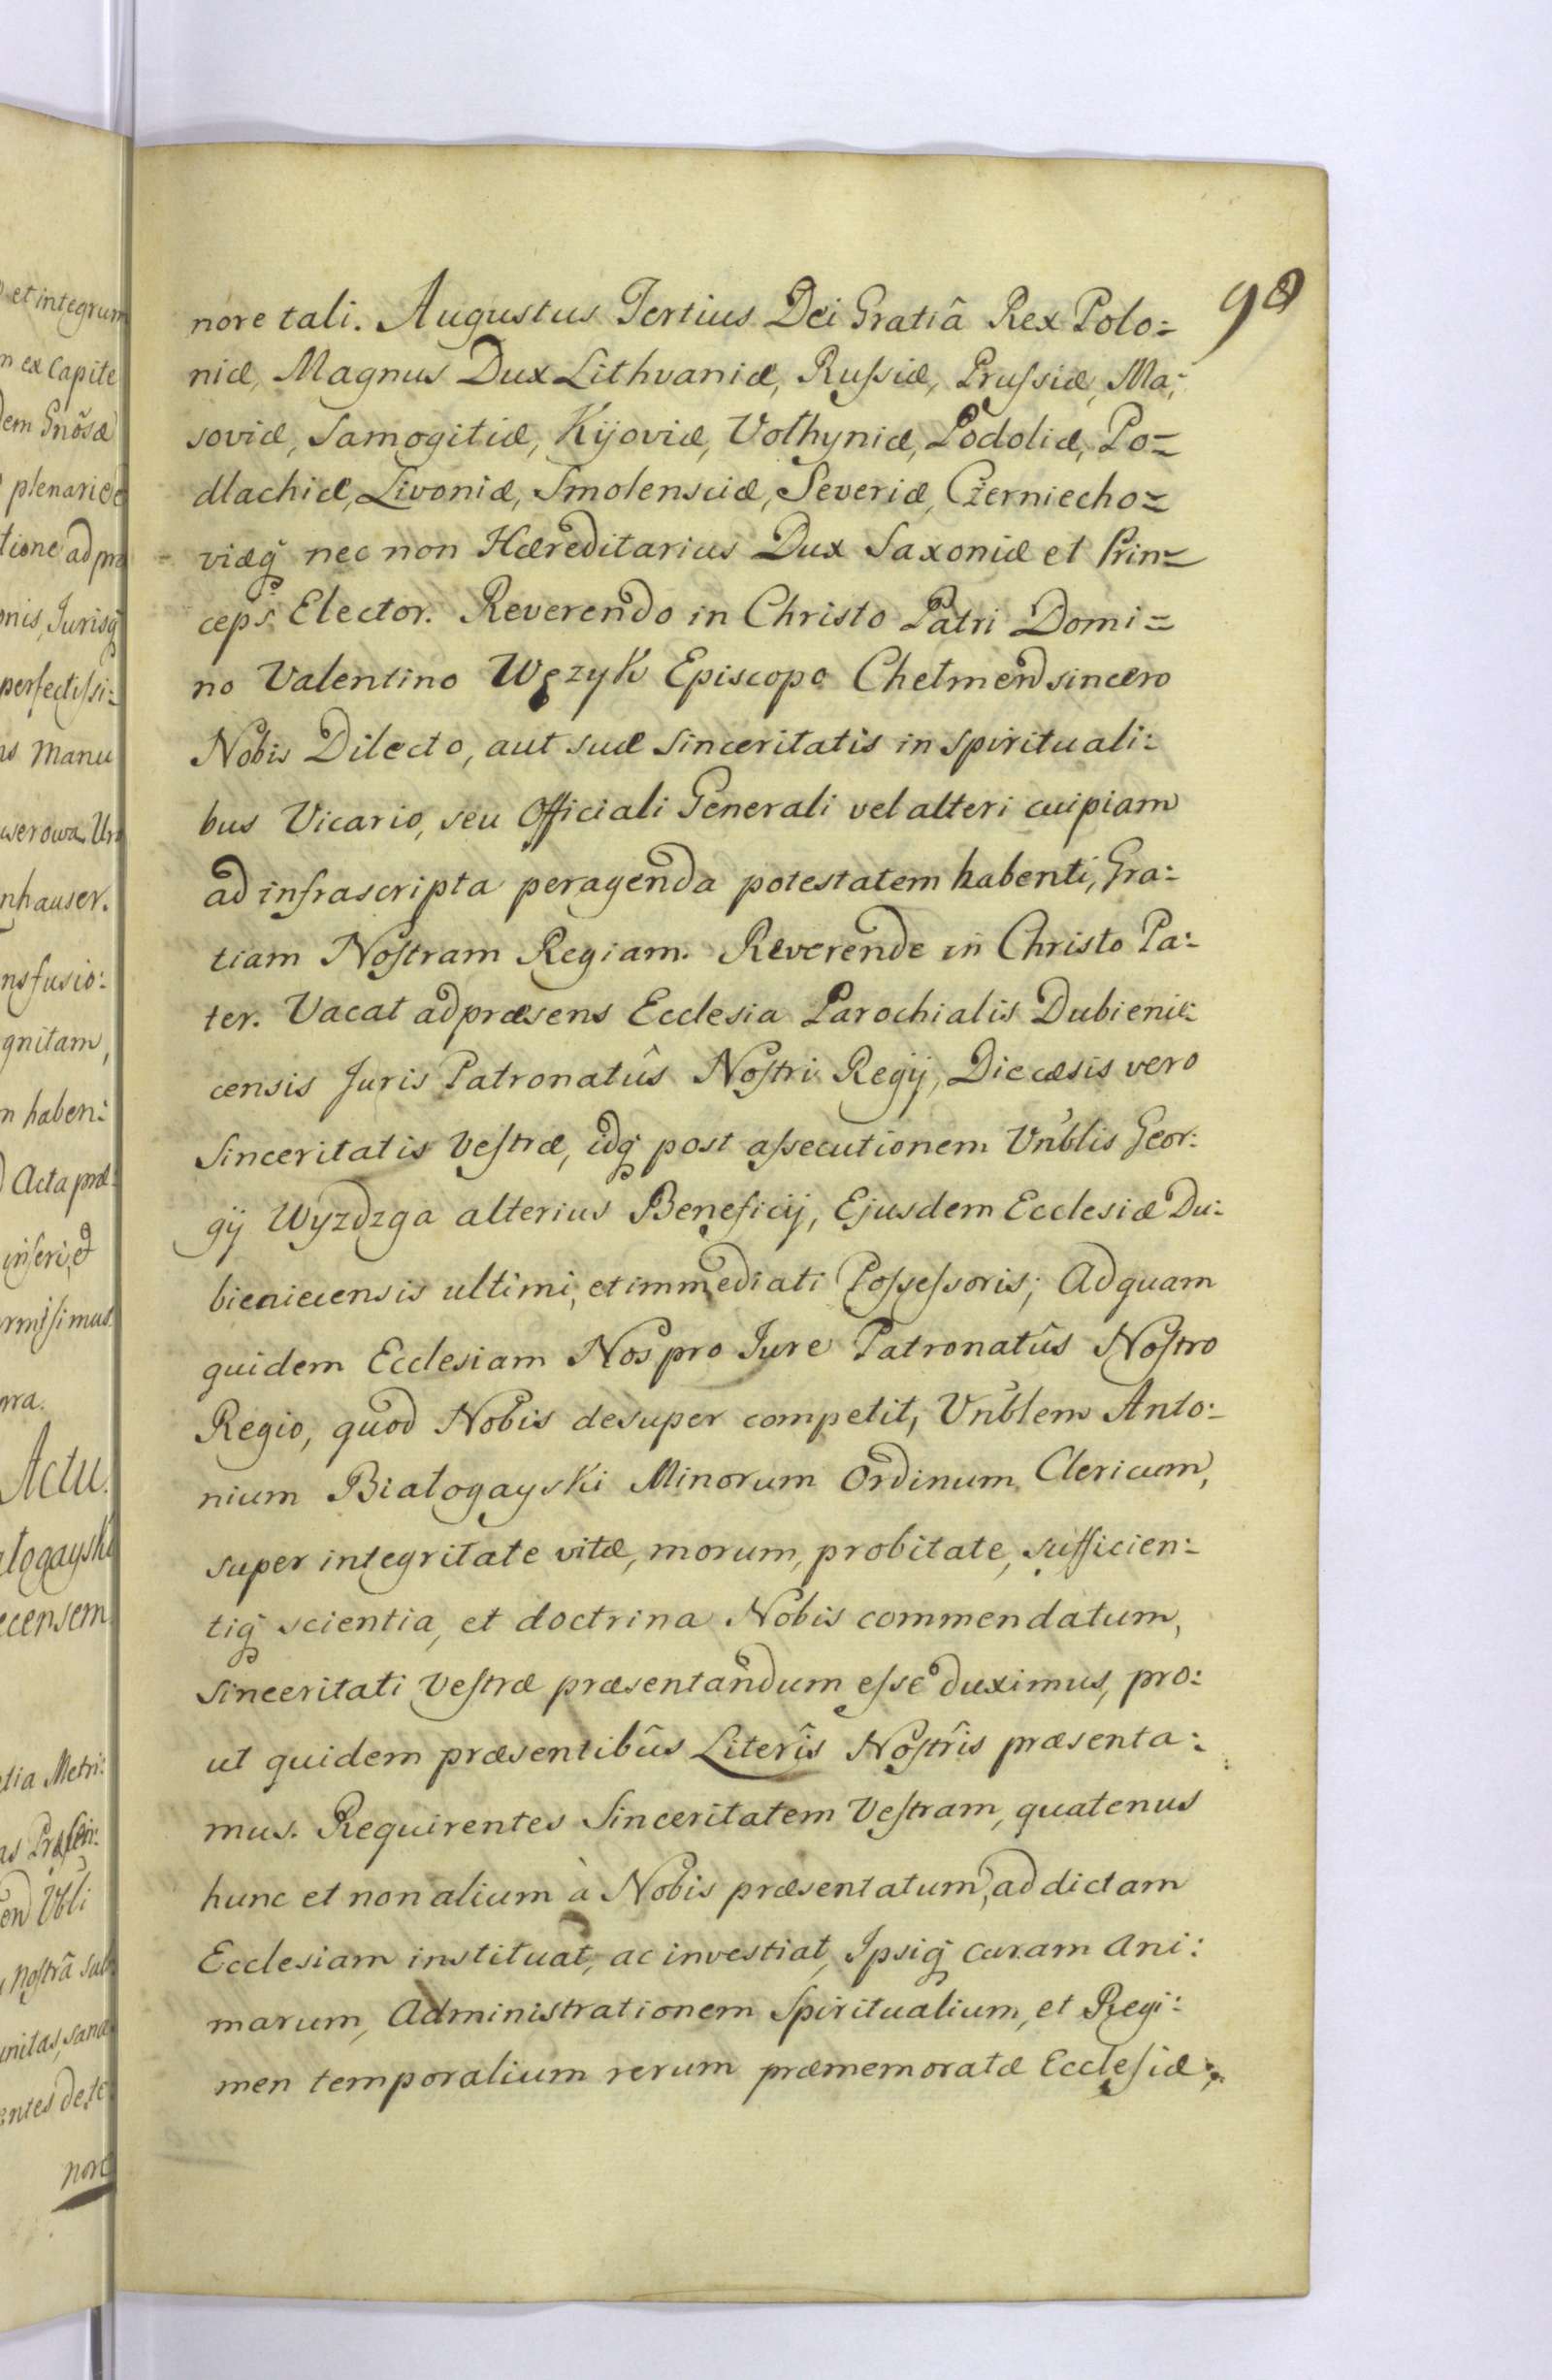 nore tali. Augustus Tertius Dei Gratiâ Rex Polo= 90
niæ, Magnus Dux Lithvaniæ, Rufsiæ, Prufsiæ, Ma:
soviæ, Samogitiæ, Kijoviæ, Vołhyniæ, Podoliæ, Po=
dlachiæ, Livoniæ, Smolensciæ, Severiæ, Czerniecho=
viæq̃ nec non Hæreditarius Dux Saxoniæ et Prin=
ceps Elector. Reverendo in Christo Patri Domi=
no Valentino Węzyk Episcopo Chelmen sincero
Nobis Dilecto, aut suæ Sinceritatis in Spirituali:
bus Vicario, seu Officiali Generali vel alteri cuipiam
ad infrascripta peragenda potestatem habenti, Gra:
tiam Noſtram Regiam. Reverende in Christo Pa:
ter. Vacat ad præsens Ecclesia Parochialis Dubienie:
censis Juris Patronatûs Noſtri Regij, Diecæsis vero
Sinceritatis Veſtræ, idq̃ post aſsecutionem Vñblis Geor:
gij Wyzdzga alterius Beneficij, Ejusdem Ecclesiæ Du:
bieniecensis ultimi, et immediati Poſseſsoris; Ad quam
quidem Ecclesiam Nos pro Jure Patronatûs Noſtro
Regio, quod Nobis desuper competit, Vñblem Anto:
nium Białogayski Minorum Ordinum Clericum,
super integritate vitæ, morum, probitate, sufficien:
tiq̃ scientia, et doctrina Nobis commendatum,
Sinceritati Veſtræ præsentandum eſse duximus, pro:
ut quidem præsentibûs Literîs Noſtrîs præsenta:
mus. Requirentes Sinceritatem Veſtram, quatenus
hunc et non alium à Nobis præsentatum, ad dictam
Ecclesiam instituat, ac investiat, Ipsiq̃ curam Ani:
marum, Administrationem Spiritualium, et Regi:
men temporalium rerum præmemoratæ Eccleſiæ,